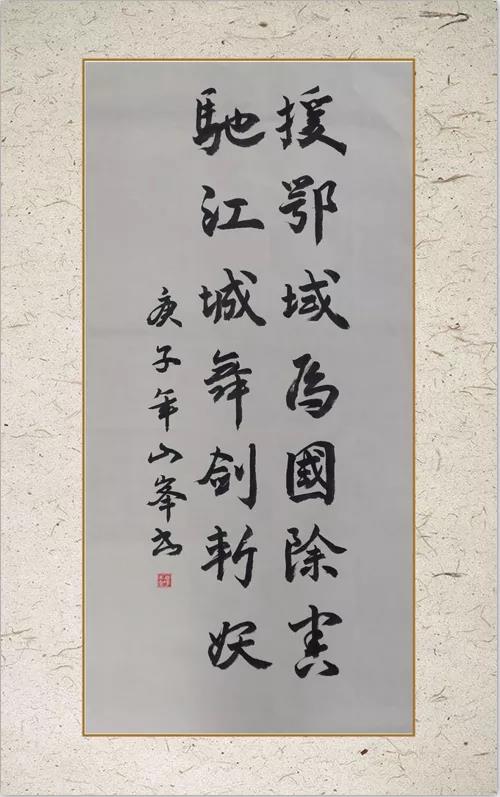 援鄂域爲國除害
馳江城舞劍斬妖
庚子年山峯書